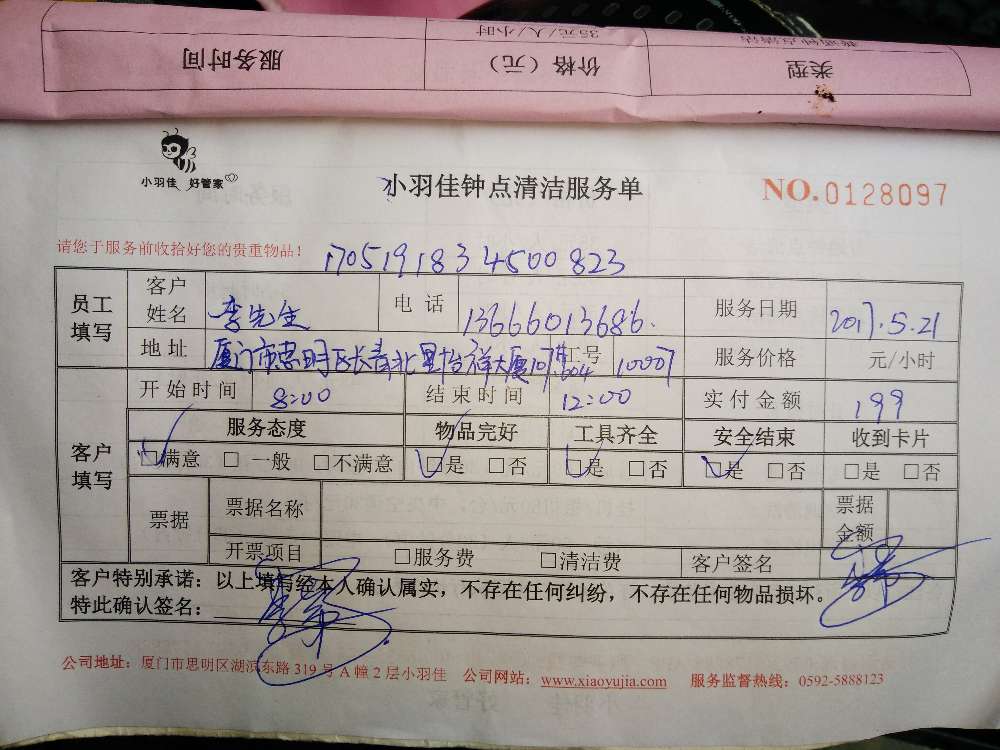 35元/人/小时
服务时间 价格（元） 类型
小羽佳 好管家
小羽佳钟点清洁服务单 NO.0128097
请您于服务前收拾好您的贵重物品！ 1705191834500823
员工填写 客户姓名 李先生 电 话 13666013686. 服务日期 2017.5.21
地 址 厦门市思明区长青北里怡祥大厦107# 504 工号 10007 服务价格 元/小时
客户填写 开 始 时 间 8:00 结 束 时 间 12:00 实 付 金 额 199
服务态度 物品完好 工具齐全 安全结束 收到卡片
☑满意 □ 一般 □不满意 ☑是 □否 ☑是 □否 ☑是 □否 □是 □否
票据 票据名称 票据金额
开票项目 □服务费 □清洁费 客户签名
客户特别承诺：以上填写经本人确认属实，不存在任何纠纷，不存在任何物品损坏。
特此确认签名：
公司地址：厦门市思明区湖滨东路 319 号 A 幢 2 层小羽佳 公司网站：www.xiaoyujia.com 服务监督热线：0592-5888123